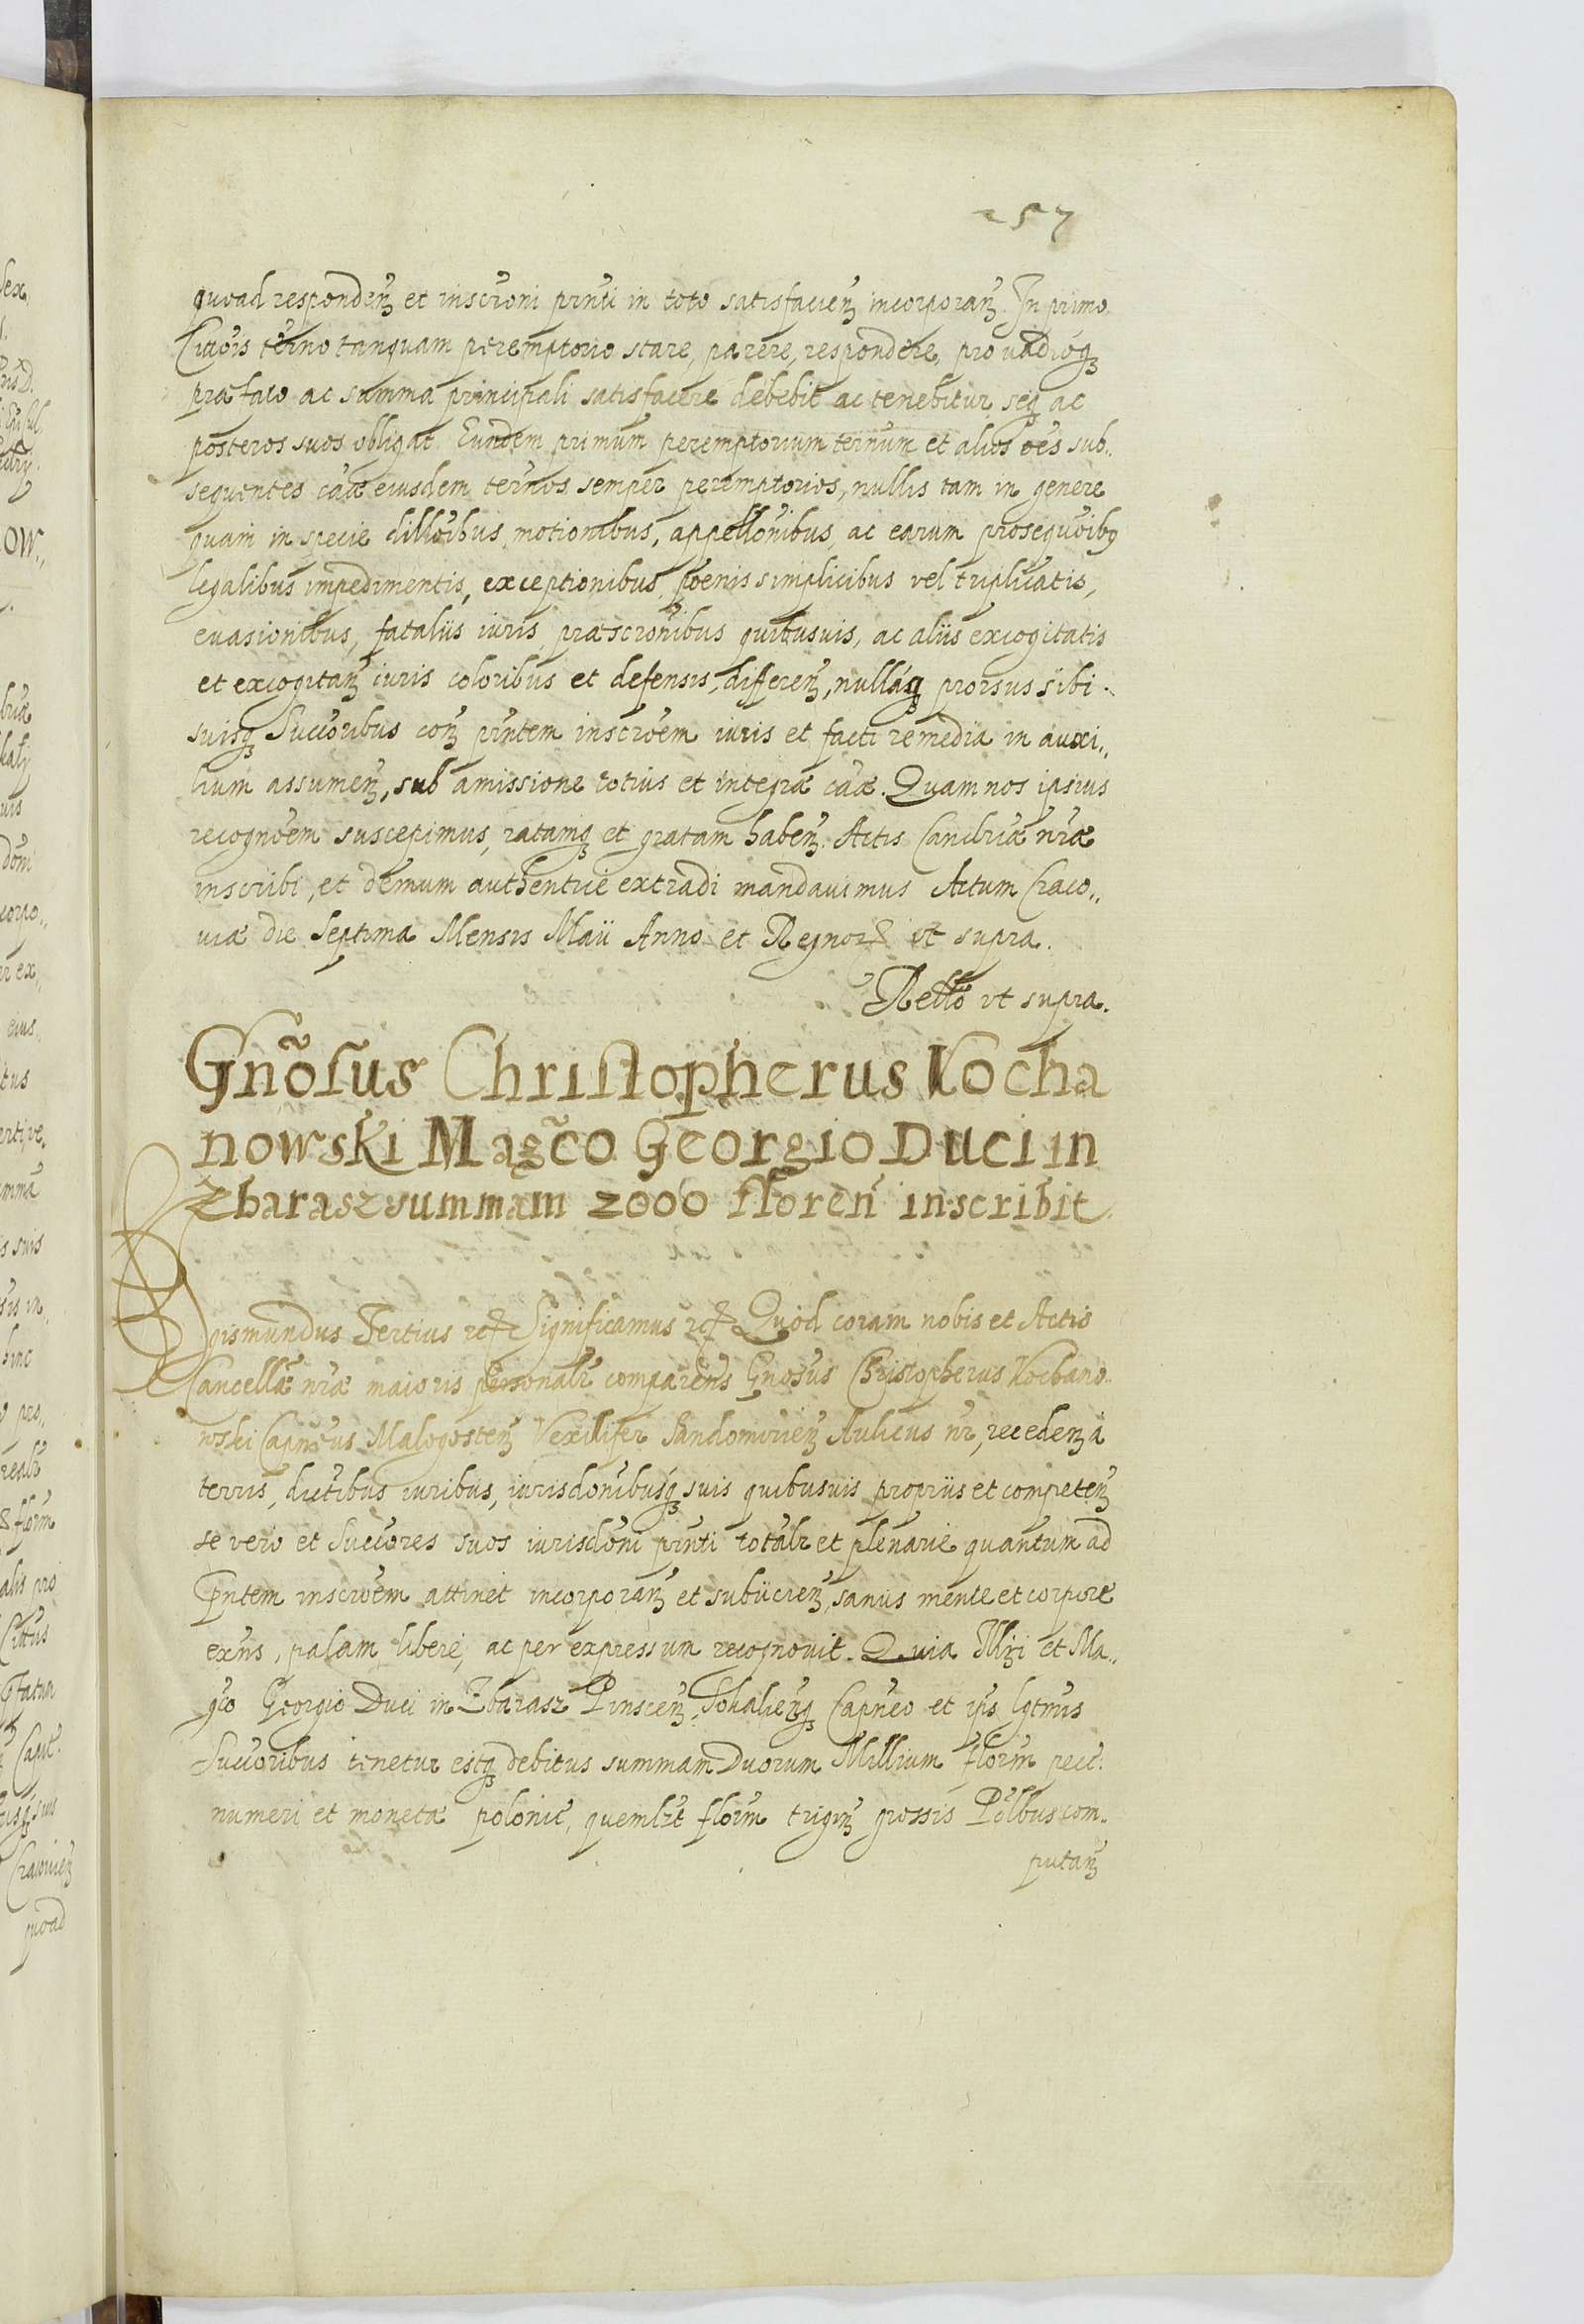 257
quoad respondeñ et inscrõni pñti in toto satisfacieñ incorporañ. In primo
Cittõis termo tanquam peremptorio stare, parere, respondere, pro vadioq̃
præfato ac summa principali satisfacere debebit ac tenebitur, seq̃ ac
posteros suos obligat. Eundem primum peremptorium terñum et alios oẽs sub„
sequentes cãæ eiusdem terños semper peremptorios, nullis tam in genere
quam in specie dillõibus, motionibus, appellõnibus, ac earum prosequõibq
legalibus impedimentis, exceptionibus, pœnis simplicibus vel triplicatis,
euasionibus, fataliis iuris, præscrõnibus quibusuis, ac aliis excogitatis
et excogitañ iuris coloribus et defensis, differeñ, nullasq̃ prorsus sibi
suisq̃ Succõribus coñ pñtem inscrõem iuris et facti remedia in auxi„
lium assumeñ, sub amissione totius et integræ cãæ. Quam nos ipsius
recognõem suscepimus, ratamq̃ et gratam habeñ. Actis Canclriæ nræ
inscribi, et demum authentice extradi mandauimus Actum Craco„
uiæ die Septima Mensis Maii Anno et Regnoꝝ ut supra.
Rellõ vt supra.
Gnõsus Christopherus Kocha
nowski Magc̃o Georgio Duci in
Zbarasz summam 2000 floren̄ inscribit
Sigismundus Tertius rcꝭ Significamus rcꝭ Quod coram nobis et Actis
Cancellæ nræ maioris personalr comparens Gnosus Christopherus Kochano„
wski Capñeus Malogosteñ Vexillifer Sandomirieñ Aulicus nr, recedeñ a
terris, distibus iuribus, iurisdonibusq̃ suis quibusuis propriis et competeñ
se vero et Succõres suos iurisdõni pñti totalr et plenarie quantum ad
Pñtem inscrõem attinet incorporañ et subiicieñ, sanus mente et corpore
exñs, palam libere, ac per expressum recognouit. Quia Illri et Ma„
gco Georgio Duci in Zbarasz Pinsceñ, Sokalieñq̃ Capñeo et ips lgtmis
Succõribus tenetur estq̃ debitus summam Duorum Millium florm pecc.
numeri et moneta polonic, quemlzt florm trigiñ grossis Polbus com„
putañ